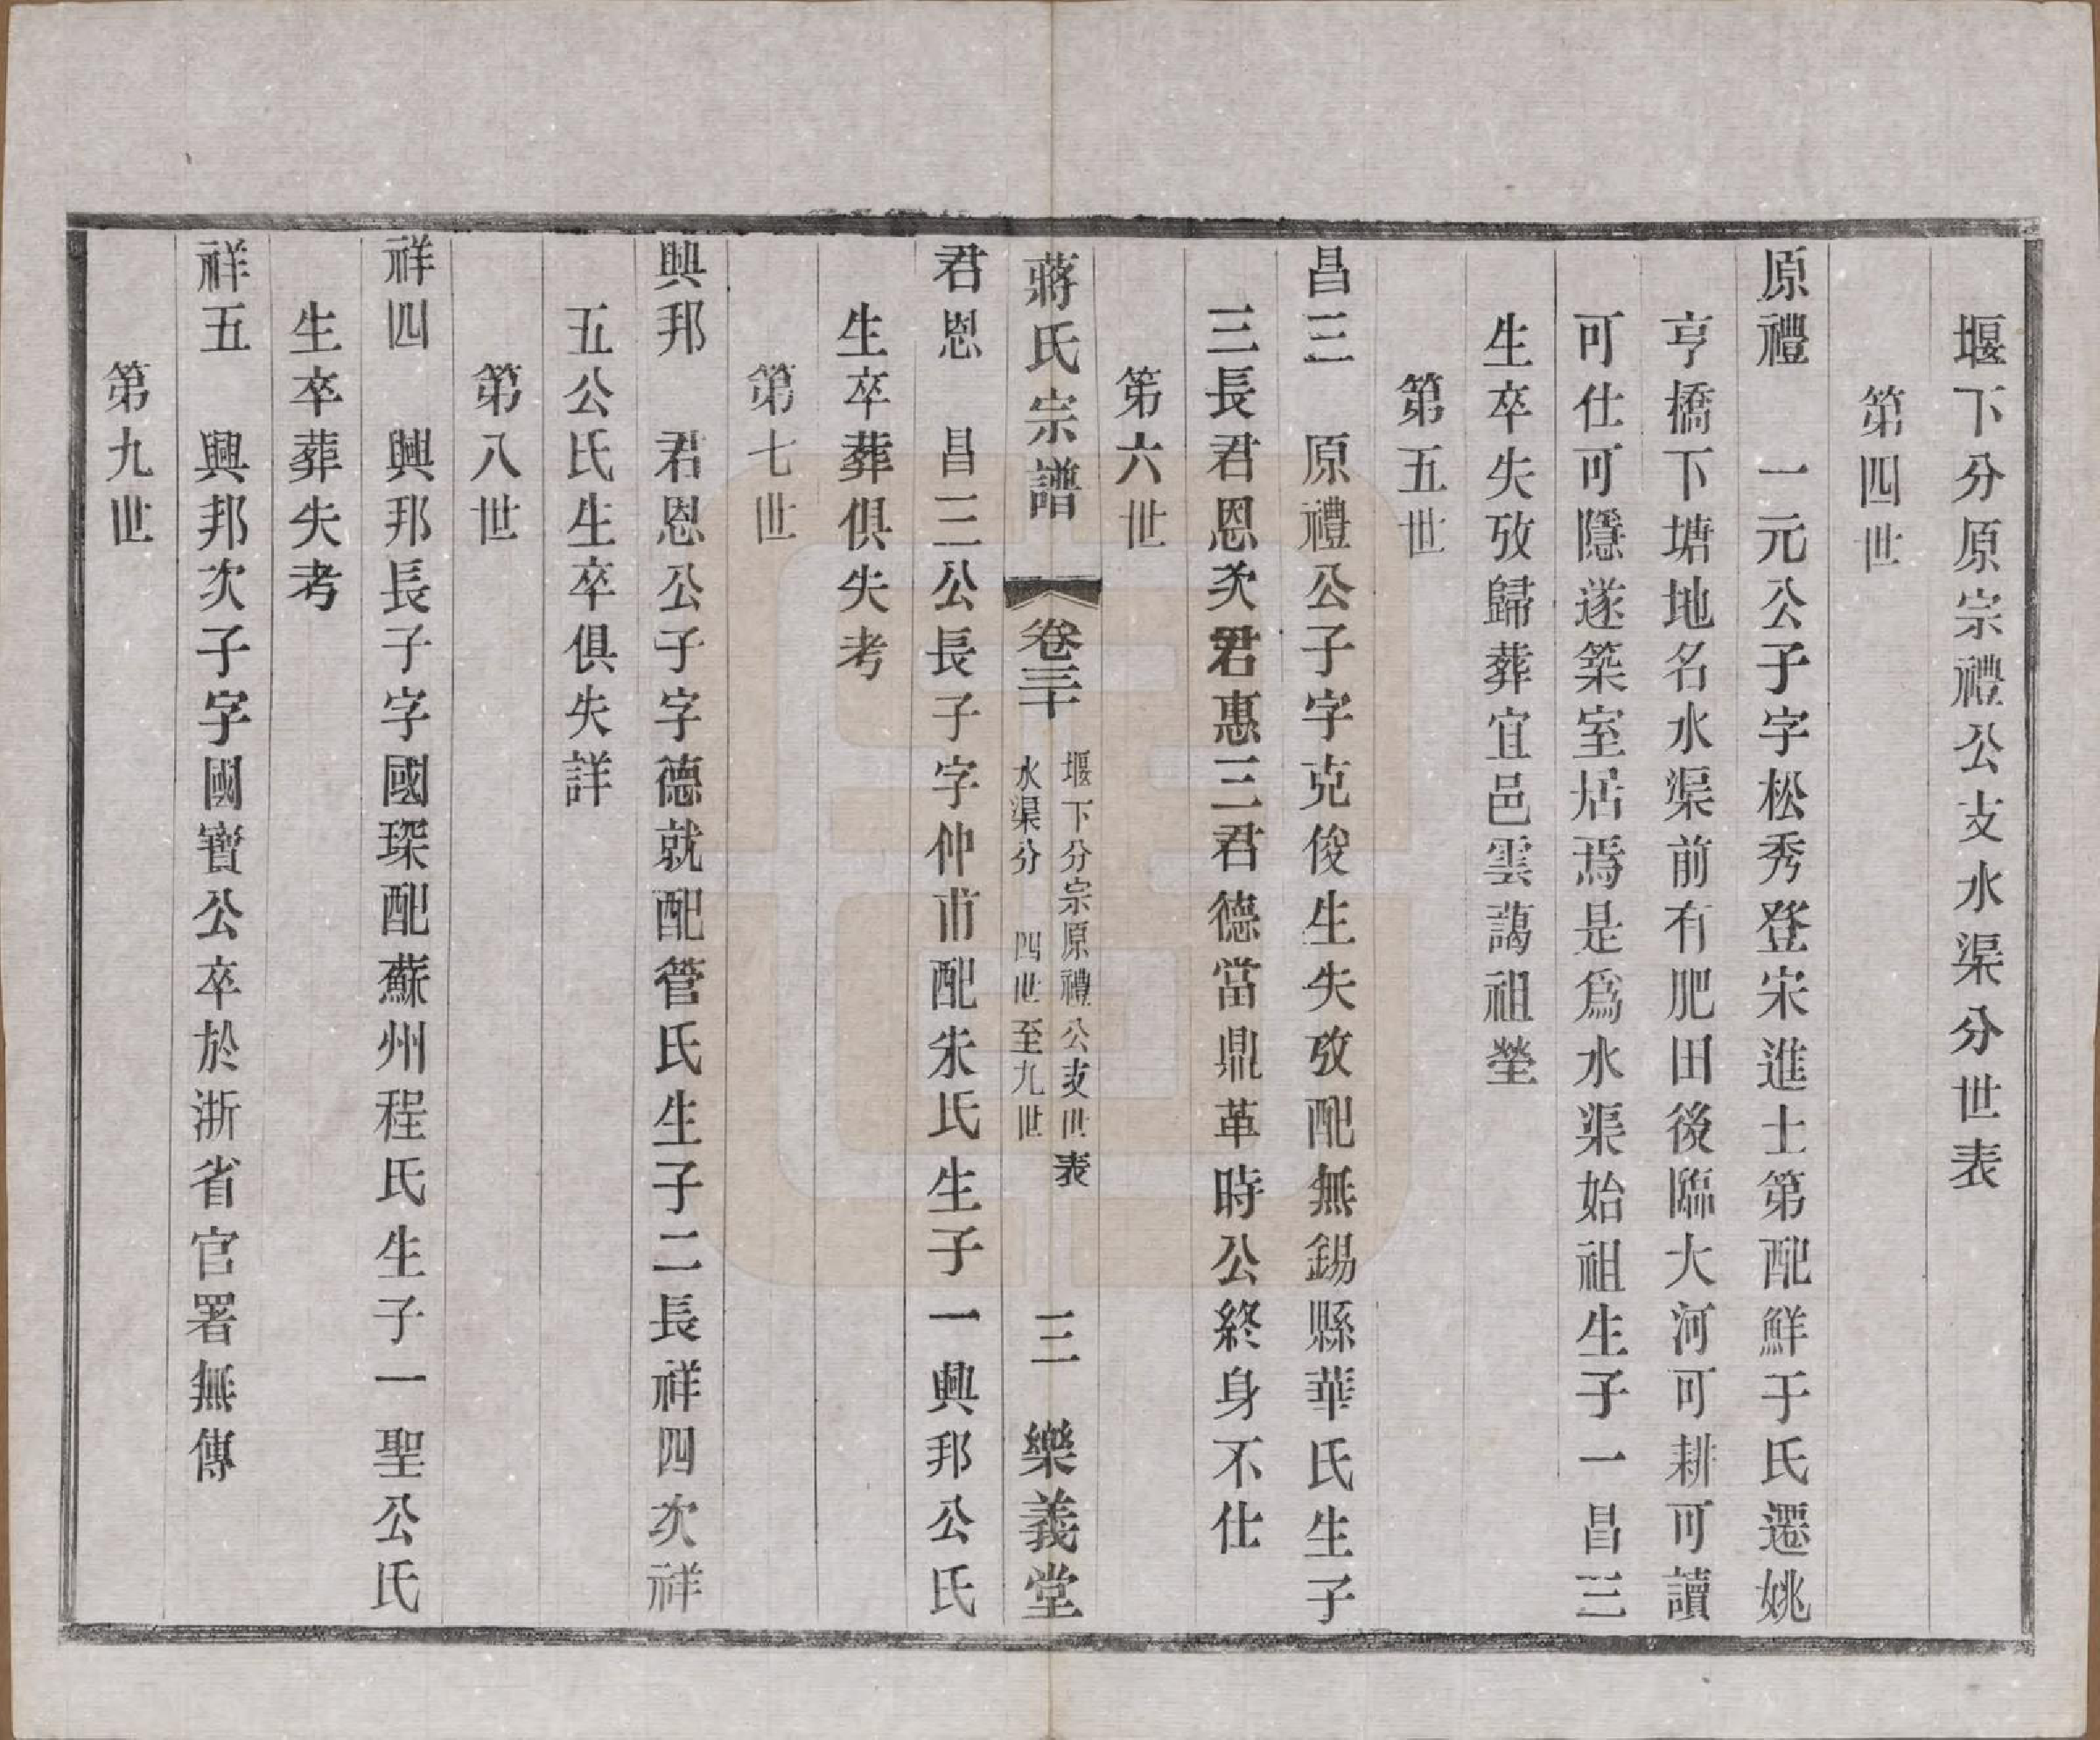 堰下分原宗禮公支水渠分世表
第四世
原禮　一元公子字松秀登宋進士第配鮮于氏遷姚
亨橋下塘地名水渠前有肥田後臨大河可耕可讀
可仕可隱遂築室居焉是爲水渠始祖生子一昌三
生卒失攷歸葬宜邑雲藹祖塋
第五世
昌三　原禮公子字克俊生失攷配無錫縣華氏生子
三長君恩次君惠三君德當鼎革時公終身不仕
第六世
蔣氏宗譜　卷三十　堰下分宗原禮公支世表　水渠分　四世至九世　三　樂義堂
君恩　昌三公長子字仲甫配朱氏生子一興邦公氏
生卒葬俱失考
第七世
興邦　君恩公子字德就配管氏生子二長祥四次祥
五公氏生卒俱失詳
第八世
祥四　興邦長子字國琛配蘇州程氏生子一聖公氏
生卒葬失考
祥五　興邦次子字國寶公卒於浙省官署無傳
第九世